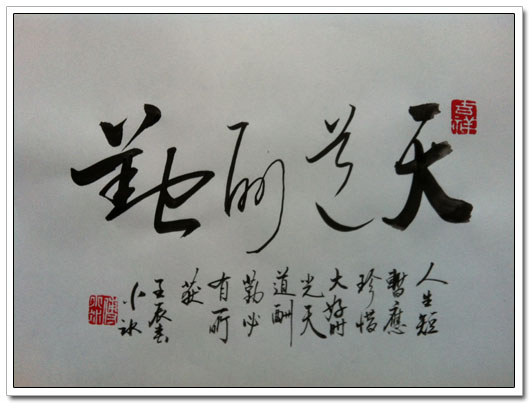 吉祥
天道酬勤
人生短
暫應
珍惜
大好时
光天
道酬
勤必
有所
获
壬辰春
小冰